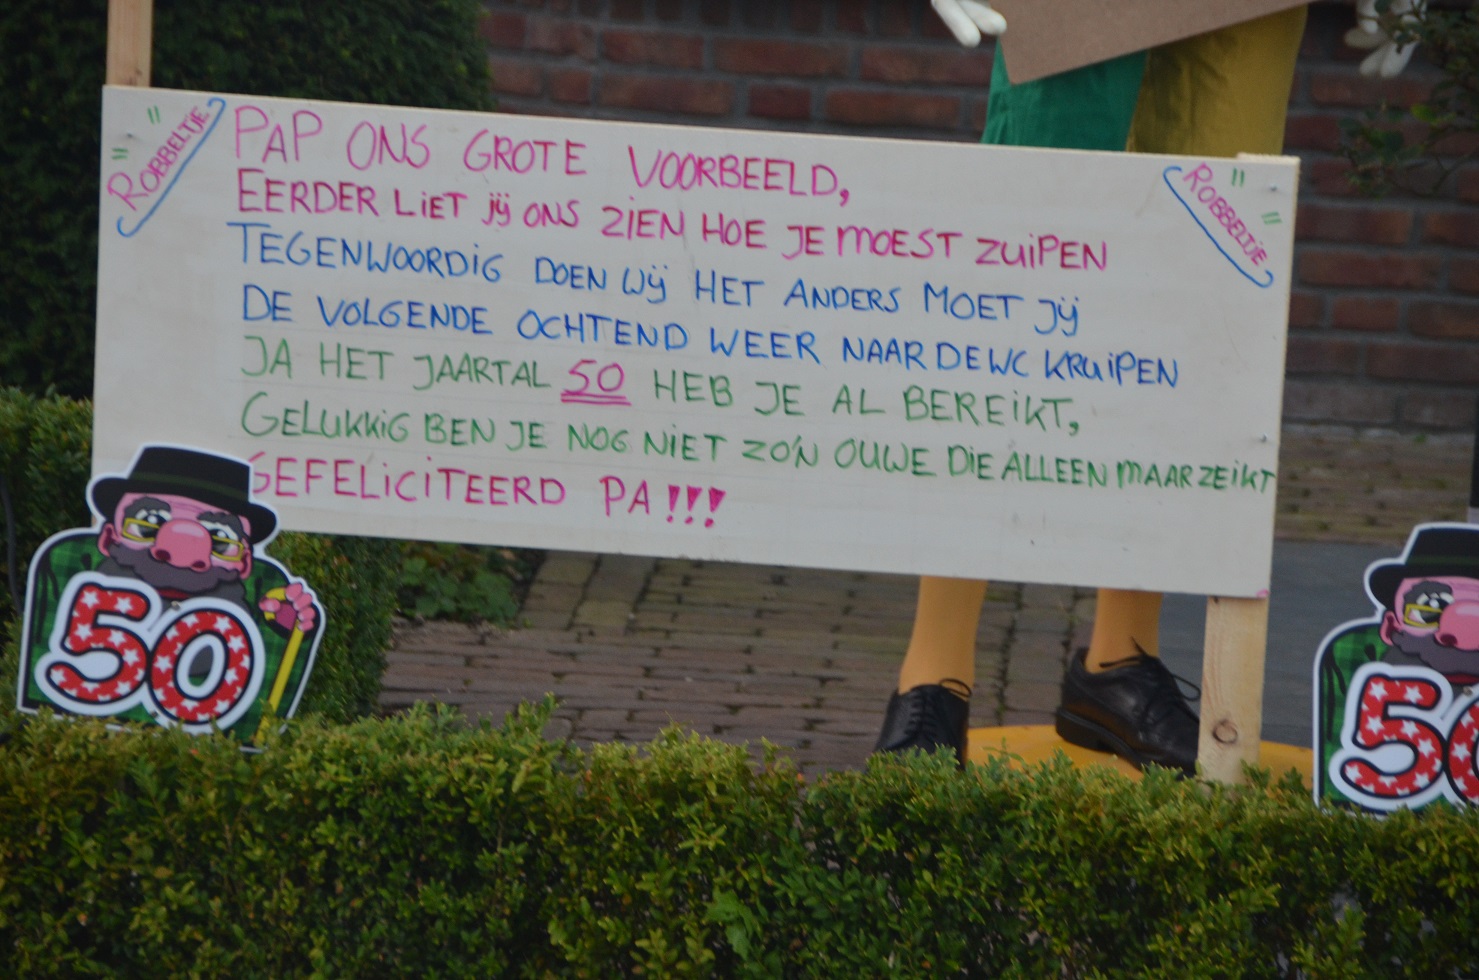 "ROBBELTJE"
PAP ONS GROTE VOORBEELD,
EERDER LIET JIJ ONS ZIEN HOE JE MOEST ZUIPEN
TEGENWOORDIG DOEN WIJ HET ANDERS MOET JIJ
DE VOLGENDE OCHTEND WEER NAAR DE WC KRUIPEN
JA HET JAARTAL 50 HEB JE AL BEREIKT,
GELUKKIG BEN JE NOG NIET ZO'N OUWE DIE ALLEEN MAAR ZEIKT
GEFELICITEERD PA!!!
"ROBBELTJE"
50
50